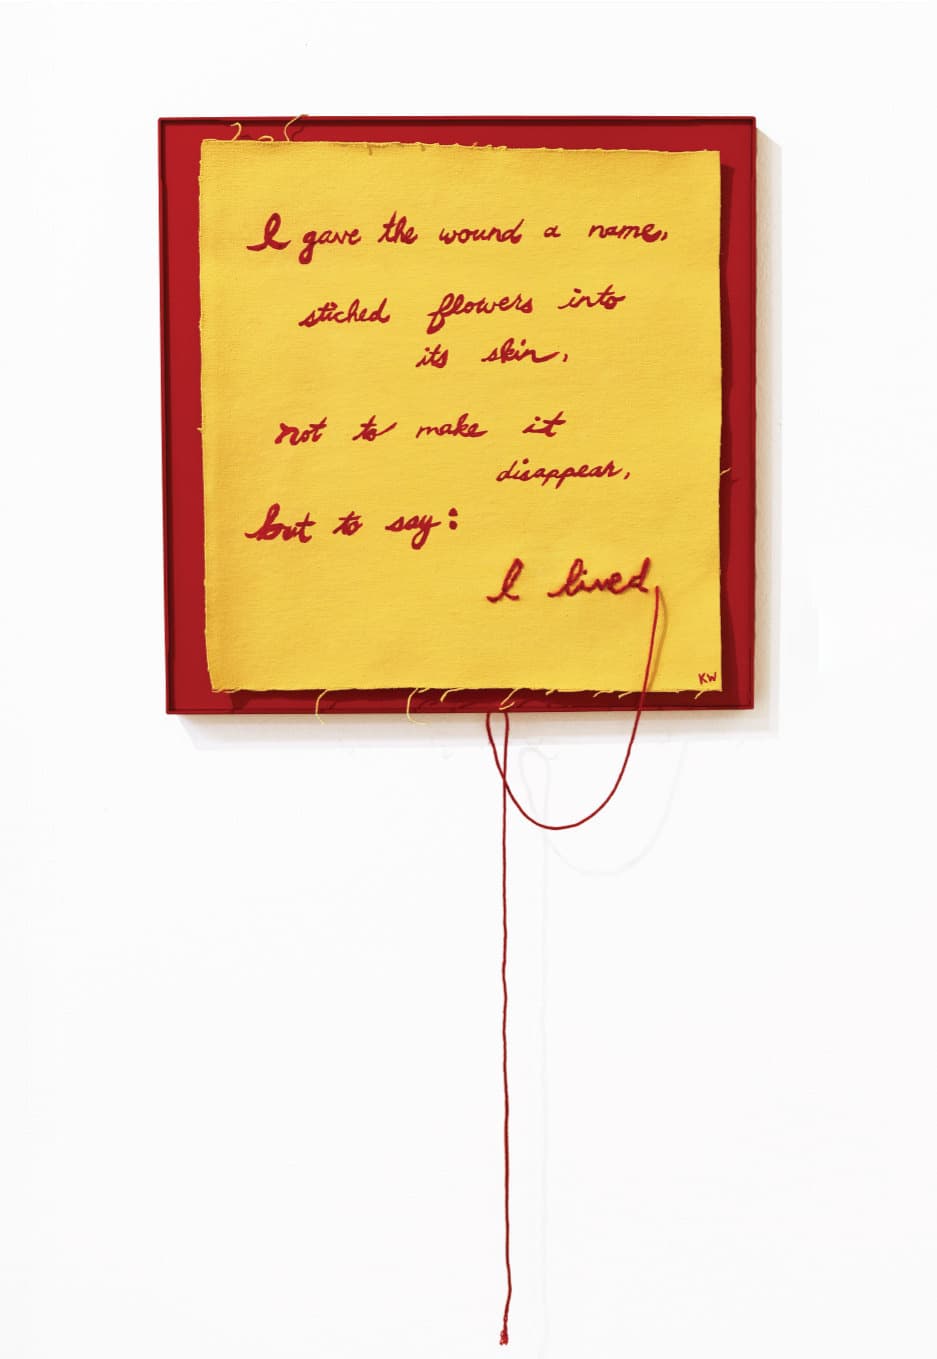 I gave the wound a name,
stiched flowers into
its skin,
not to make it
disappear,
but to say:
I lived
KW